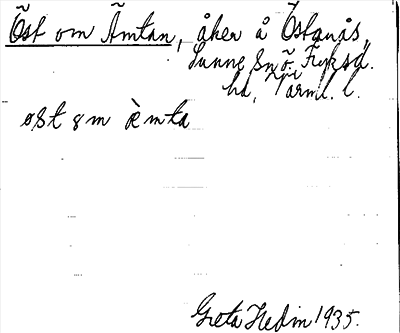 Öst om Ämtan, åker å Östanås,
Sunne sn ö. Fryksd.
hd, Värml. l.
øst ꞩm ὲmta
Greta Hedin 1935.